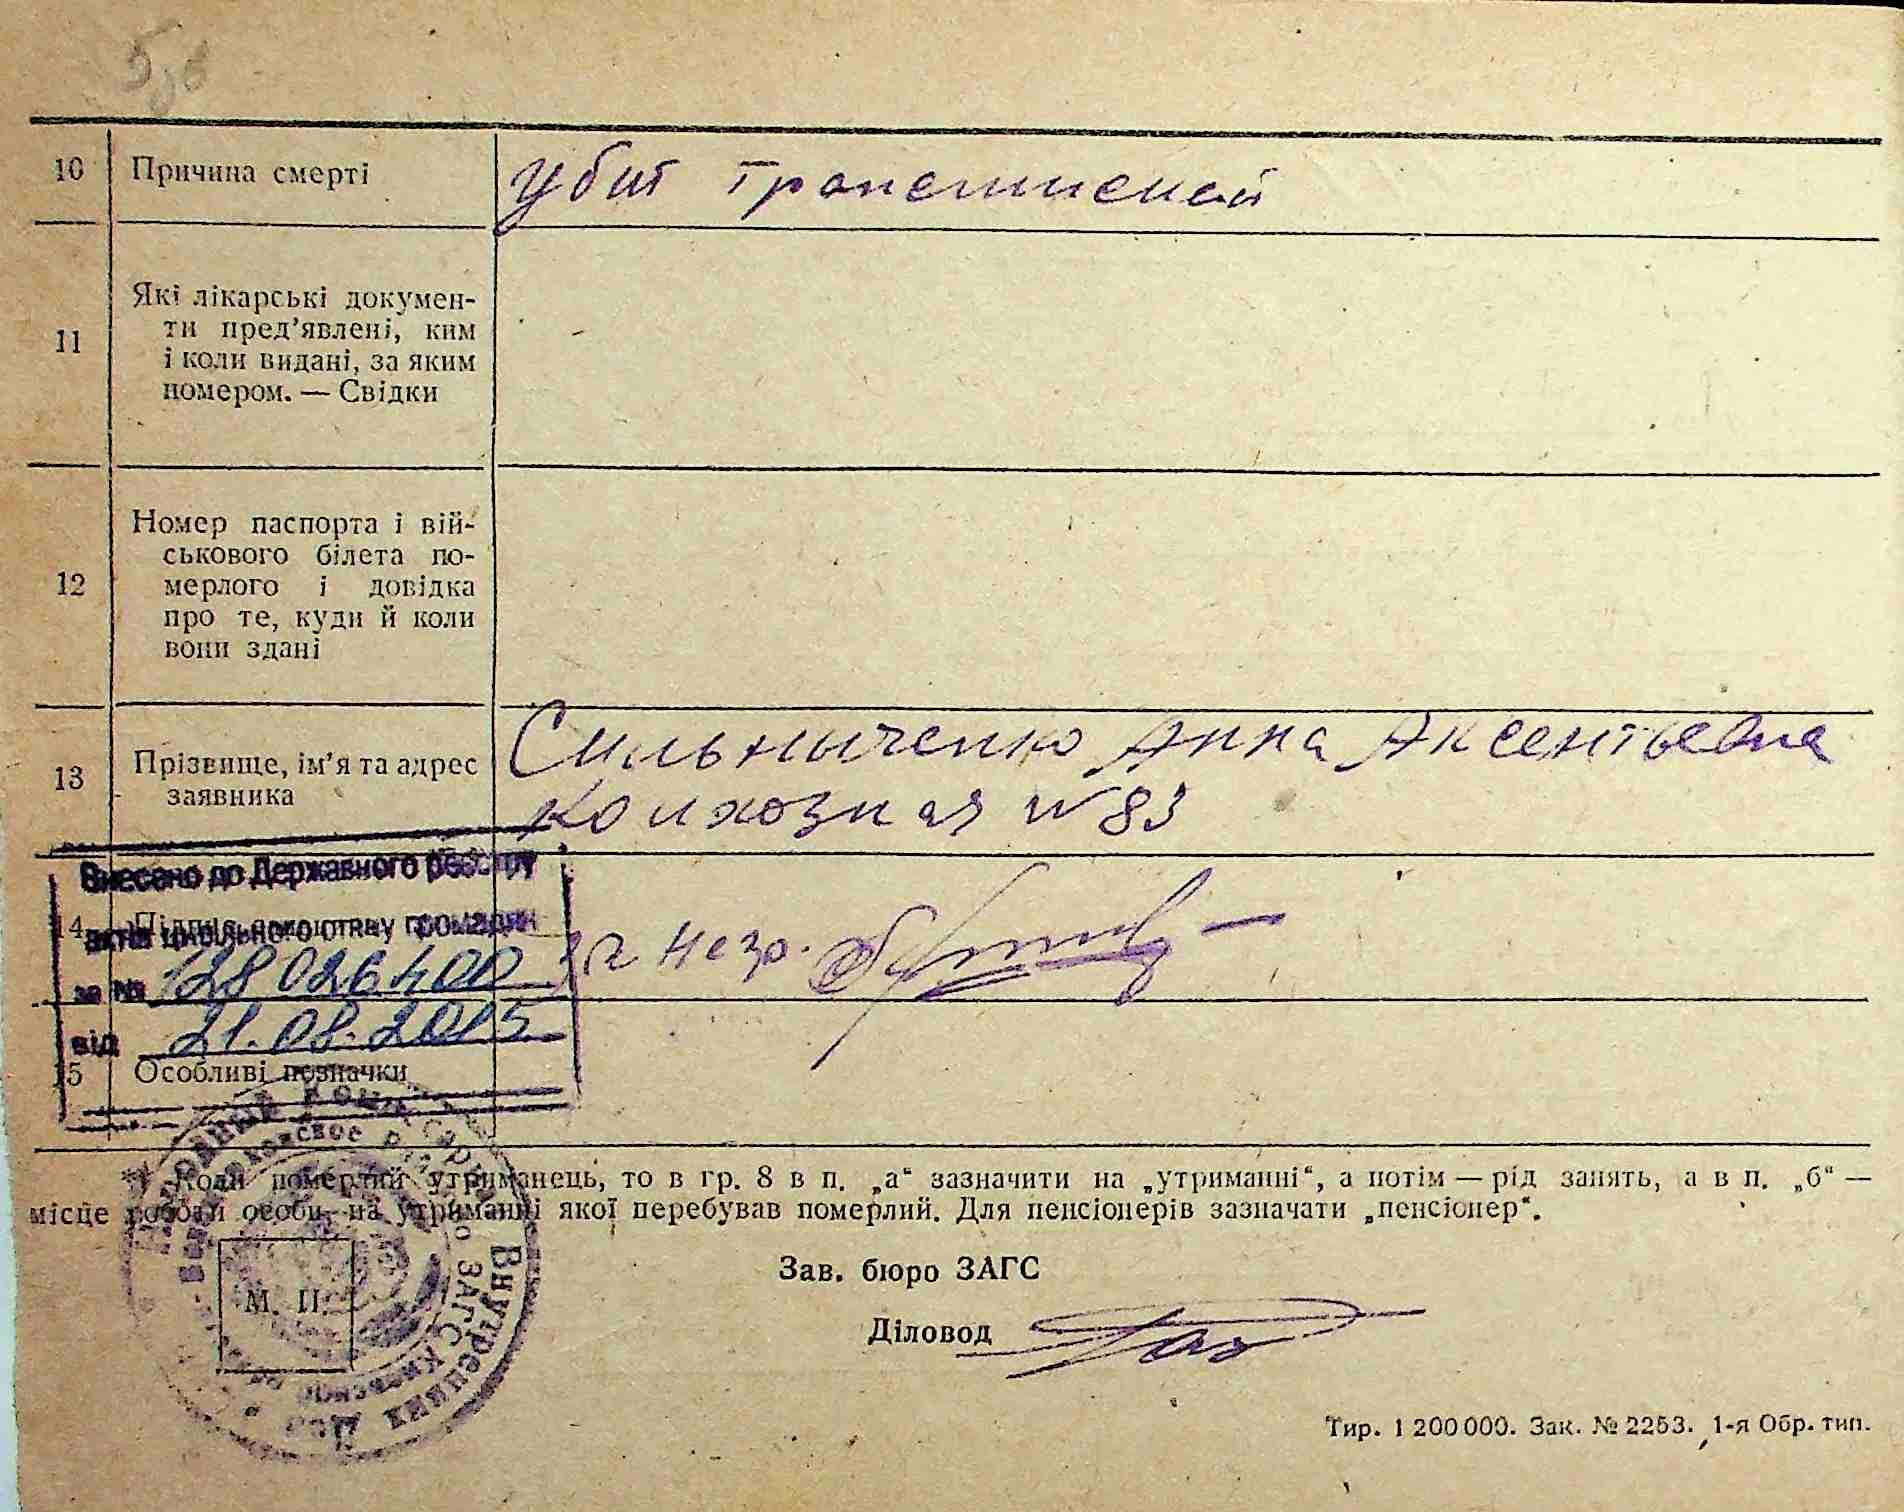 10 Причина смерті убит трансмисией
11 Які лікарські докумен-
ти пред'явлені, ким
і коли видані, за яким
номером. — Свідки
12 Номер паспорта і вій-
ськового білета по-
мерлого і довідка
про те, куди й коли
вони здані
13 Прізвище, ім'я та адрес
заявника
Сильныченко Анна Аксентьевна
Колхозная №83
Внесено до Державного реєстру
актів цивільного стану громадян
за № 128 026 400
від 21.08.2015
14 Підпис
за негр.
15 Особливі позначки
*) Коли померлий утриманець, то в гр. 8 в п. „а“ зазначити на „утриманні“, а потім — рід занять, а в п. „б“ —
місце роботи особи, на утриманні якої перебував померлий. Для пенсіонерів зазначати „пенсіонер“.
Народный Комиссариат Внутренних Дел
ЗАГС Киевской
М. П.
Зав. бюро ЗАГС
Діловод
Тир. 1 200 000. Зак. № 2253. 1-я Обр. тип.